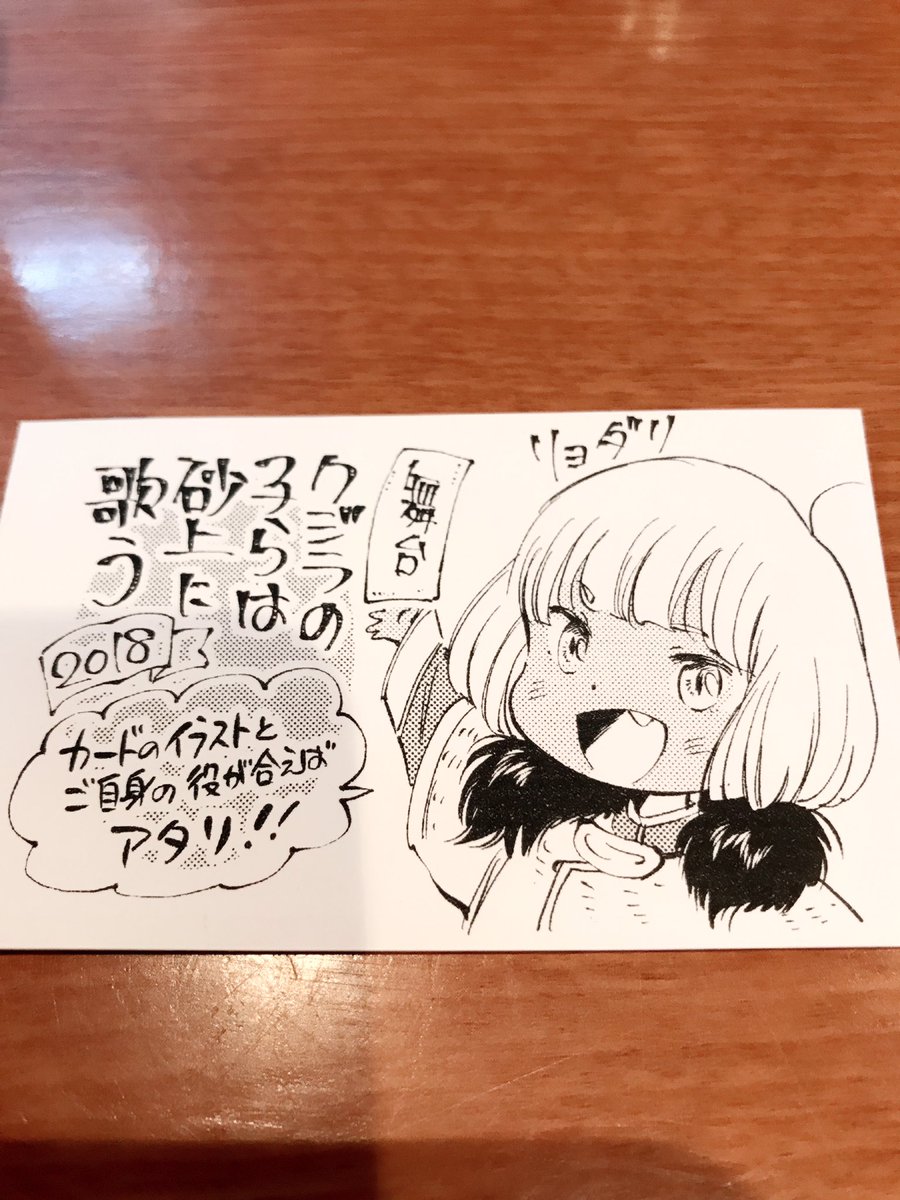 リョダリ
舞台
クジラの
子らは
砂上に
歌う
2018
カードのイラストと
ご自身の役が合えば
アタリ!!